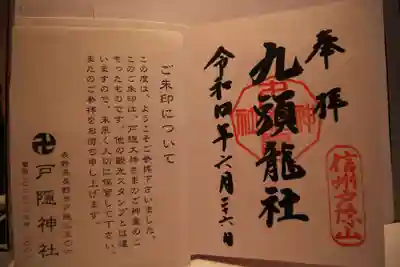 奉拝
九頭龍社
令和四年六月二六日
信州戸隠山
ご朱印について
この度は、ようこそご参拝下さいました。
このご朱印は、戸隠大神さまのご神徳のこ
もったものです。他の観光スタンプとは違
いますので、末永く大切に保管して下さい。
またのご参拝をお待ち申し上げます。
戸隠神社